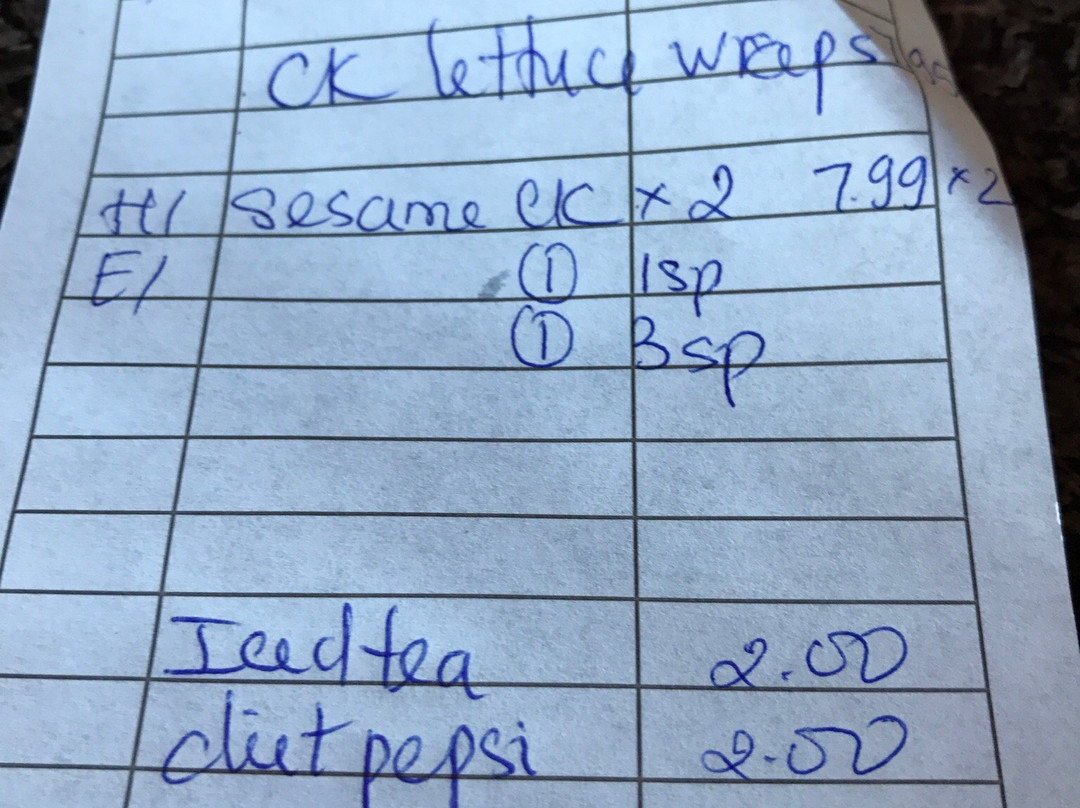 CK lettuce wraps
H/ sesame CK x 2 7.99 x 2
E/ ① 1sp
① 3sp
Iced tea 2.00
diet pepsi 2.00